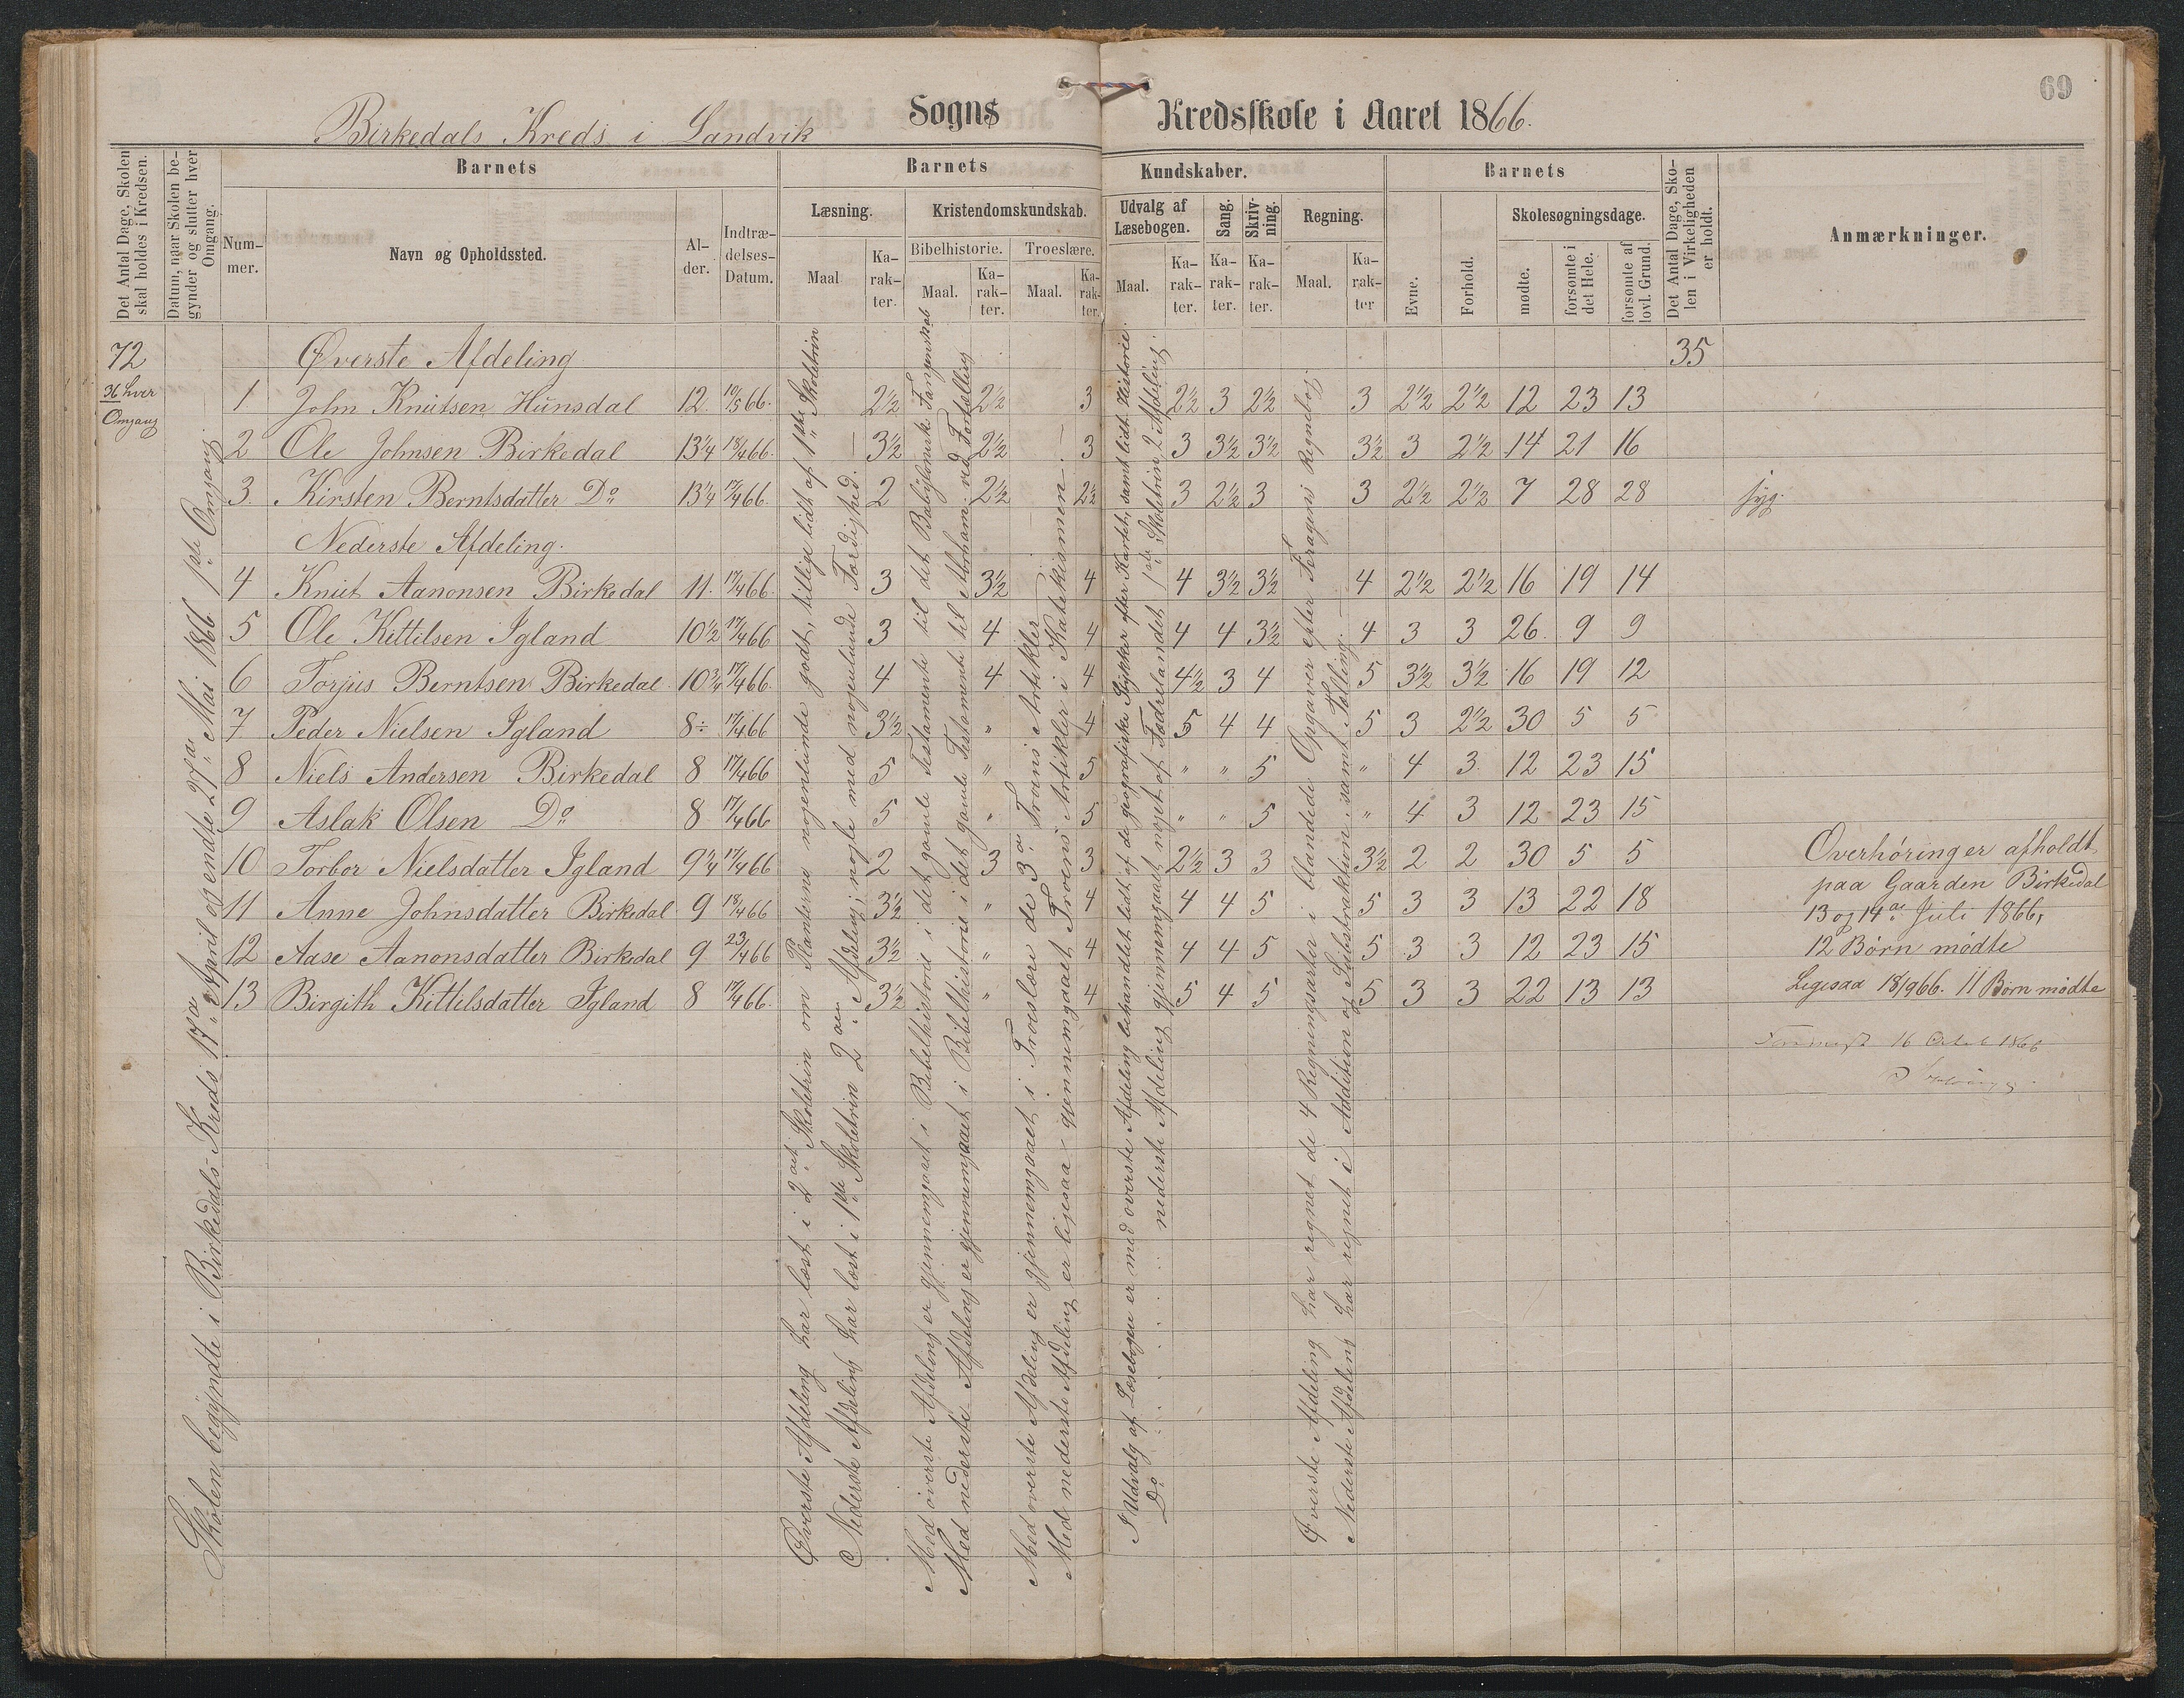 69
Birkedals Kreds i Landvik Sogns Kredsskole i Aaret 1866.
Det Antal Dage, Skolen skal holdes i Kredsen.
Datum, naar Skolen begynder og slutter hver Omgang.
Barnets
Nummer.
Navn og Opholdssted.
Alder.
Indtrædelses-Datum.
Barnets Kundskaber.
Læsning.
Maal
Karakter.
Kristendomskundskab.
Bibelhistorie.
Maal.
Karakter.
Troeslære.
Maal.
Karakter.
Udvalg af Læsebogen.
Maal.
Karakter.
Sang.
Karakter.
Skrivning.
Karakter.
Regning.
Maal.
Karakter
Barnets
Evne.
Forhold.
Skolesøgningsdage.
mødte.
forsømte i det Hele.
forsømte af lovl. Grund.
Det Antal Dage, Skolen i Virkeligheden er holdt.
Anmærkninger.
72 Øverste Afdeling 35
36 hver Omgang
1 John Knutsen Hunsdal 12 10/5 66. 2½ 2½ 3 2½ 3 2½ 3 2½ 2½ 12 23 13
2 Ole Johnsen Birkedal 13¼ 18/4 66. 3½ 2½ 3 3 3½ 3½ 3½ 3 2½ 14 21 16
3. Kirsten Berntsdatter Do 13¼ 17/4 66. 2 2½ 2½ 3 2½ 3 3 2½ 2½ 7 28 28 syg.
Nederste Afdeling.
4 Knut Aanonsen Birkedal 11. 17/4 66. 3 3½ 4 4 3½ 3½ 4 2½ 2½ 16 19 14
5 Ole Kittilsen Igland 10½ 17/4 66 3 4 4 4 4 3½ 4 3 3 26. 9 9
6 Torjus Berntsen Birkedal 10¾ 17/4 66. 4 4 4 4½ 3 4 5 3½ 3½ 16 19 12
7 Peder Nielsen Igland 8 17/4 66 3½ " 4 5 4 4 5 3 2½ 30 5 5
8 Niels Andersen Birkedal 8 17/4 66 5 " 5 " " 5 " 4 3. 12 23 15
9 Aslak Olsen Do 8 17/4 66 5 " 5 " " 5 " 4 3 12 23 15
10 Torbor Nielsdatter Igland 9¼ 17/4 66 2 3 3 2½ 3 3 3½ 2 2 30 5 5
11 Anne Johnsdatter Birkedal 9 18/4 66 3½ " 4 4 4 5 5 3 3 13 22 18
12 Aase Aanonsdatter Birkedal 9 23/4 66 3½ " 4 4 4 5 5 3 3 12 23 15
13 Birgith Kittilsdatter Igland 8 17/4 66. 3½ " 4 5 4 5 5 3 3 22 13 13
Skolen begyndte i Birkedals Kreds 17de April og endte 27de Mai 1866 1ste Omgang.
Øverste Afdeling har læst i 2det Skoletrin om Planterne nogenlunde godt, tillige lidt af 1ste Skoletrin
Nederste Afdeling har læst i 1ste Skoletrin 2den Afdeling; nogle med nogenlunde Færdighed.
Med øverste Afdeling er gjennemgaaet i Bibelhistorie i det gamle Testamente til det Babyloniske Fangenskab
Med nederste Afdeling er gjennemgaaet i Bibelhistorie i det gamle Testamente til Abraham ved Fortælling
Med øverste Afdeling er gjennemgaaet i Troeslære de 3de Troens Artikler
Med nederste Afdeling er ligesaa gjennemgaaet Troens Artikler i Katekismen.
I Udvalg af Læsebogen er med øverste Afdeling behandlet lidt af de geografiske Stykker efter Kartet, samt lidt Historie.
Do nederste Afdeling gjennemgaaet noget af Fædrelandet 1ste Skoletrin 2 Afdeling.
Øverste Afdeling har regnet de 4 Regningsarter i blandede Opgaver efter Foragens Regnebog.
Nederste Afdeling har regnet i Addition og Subtraktion samt Tælling.
Overhøringer afholdt
paa Gaarden Birkedal
13 og 14de Juli 1866,
12 Børn mødte
Ligesaa 18/9 66. 11 Børn mødte
16 1866